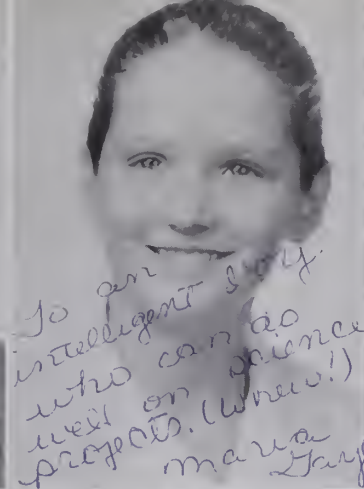 To an
intelligent boy.
who can do
well on science
projects. (whew!)
Maria